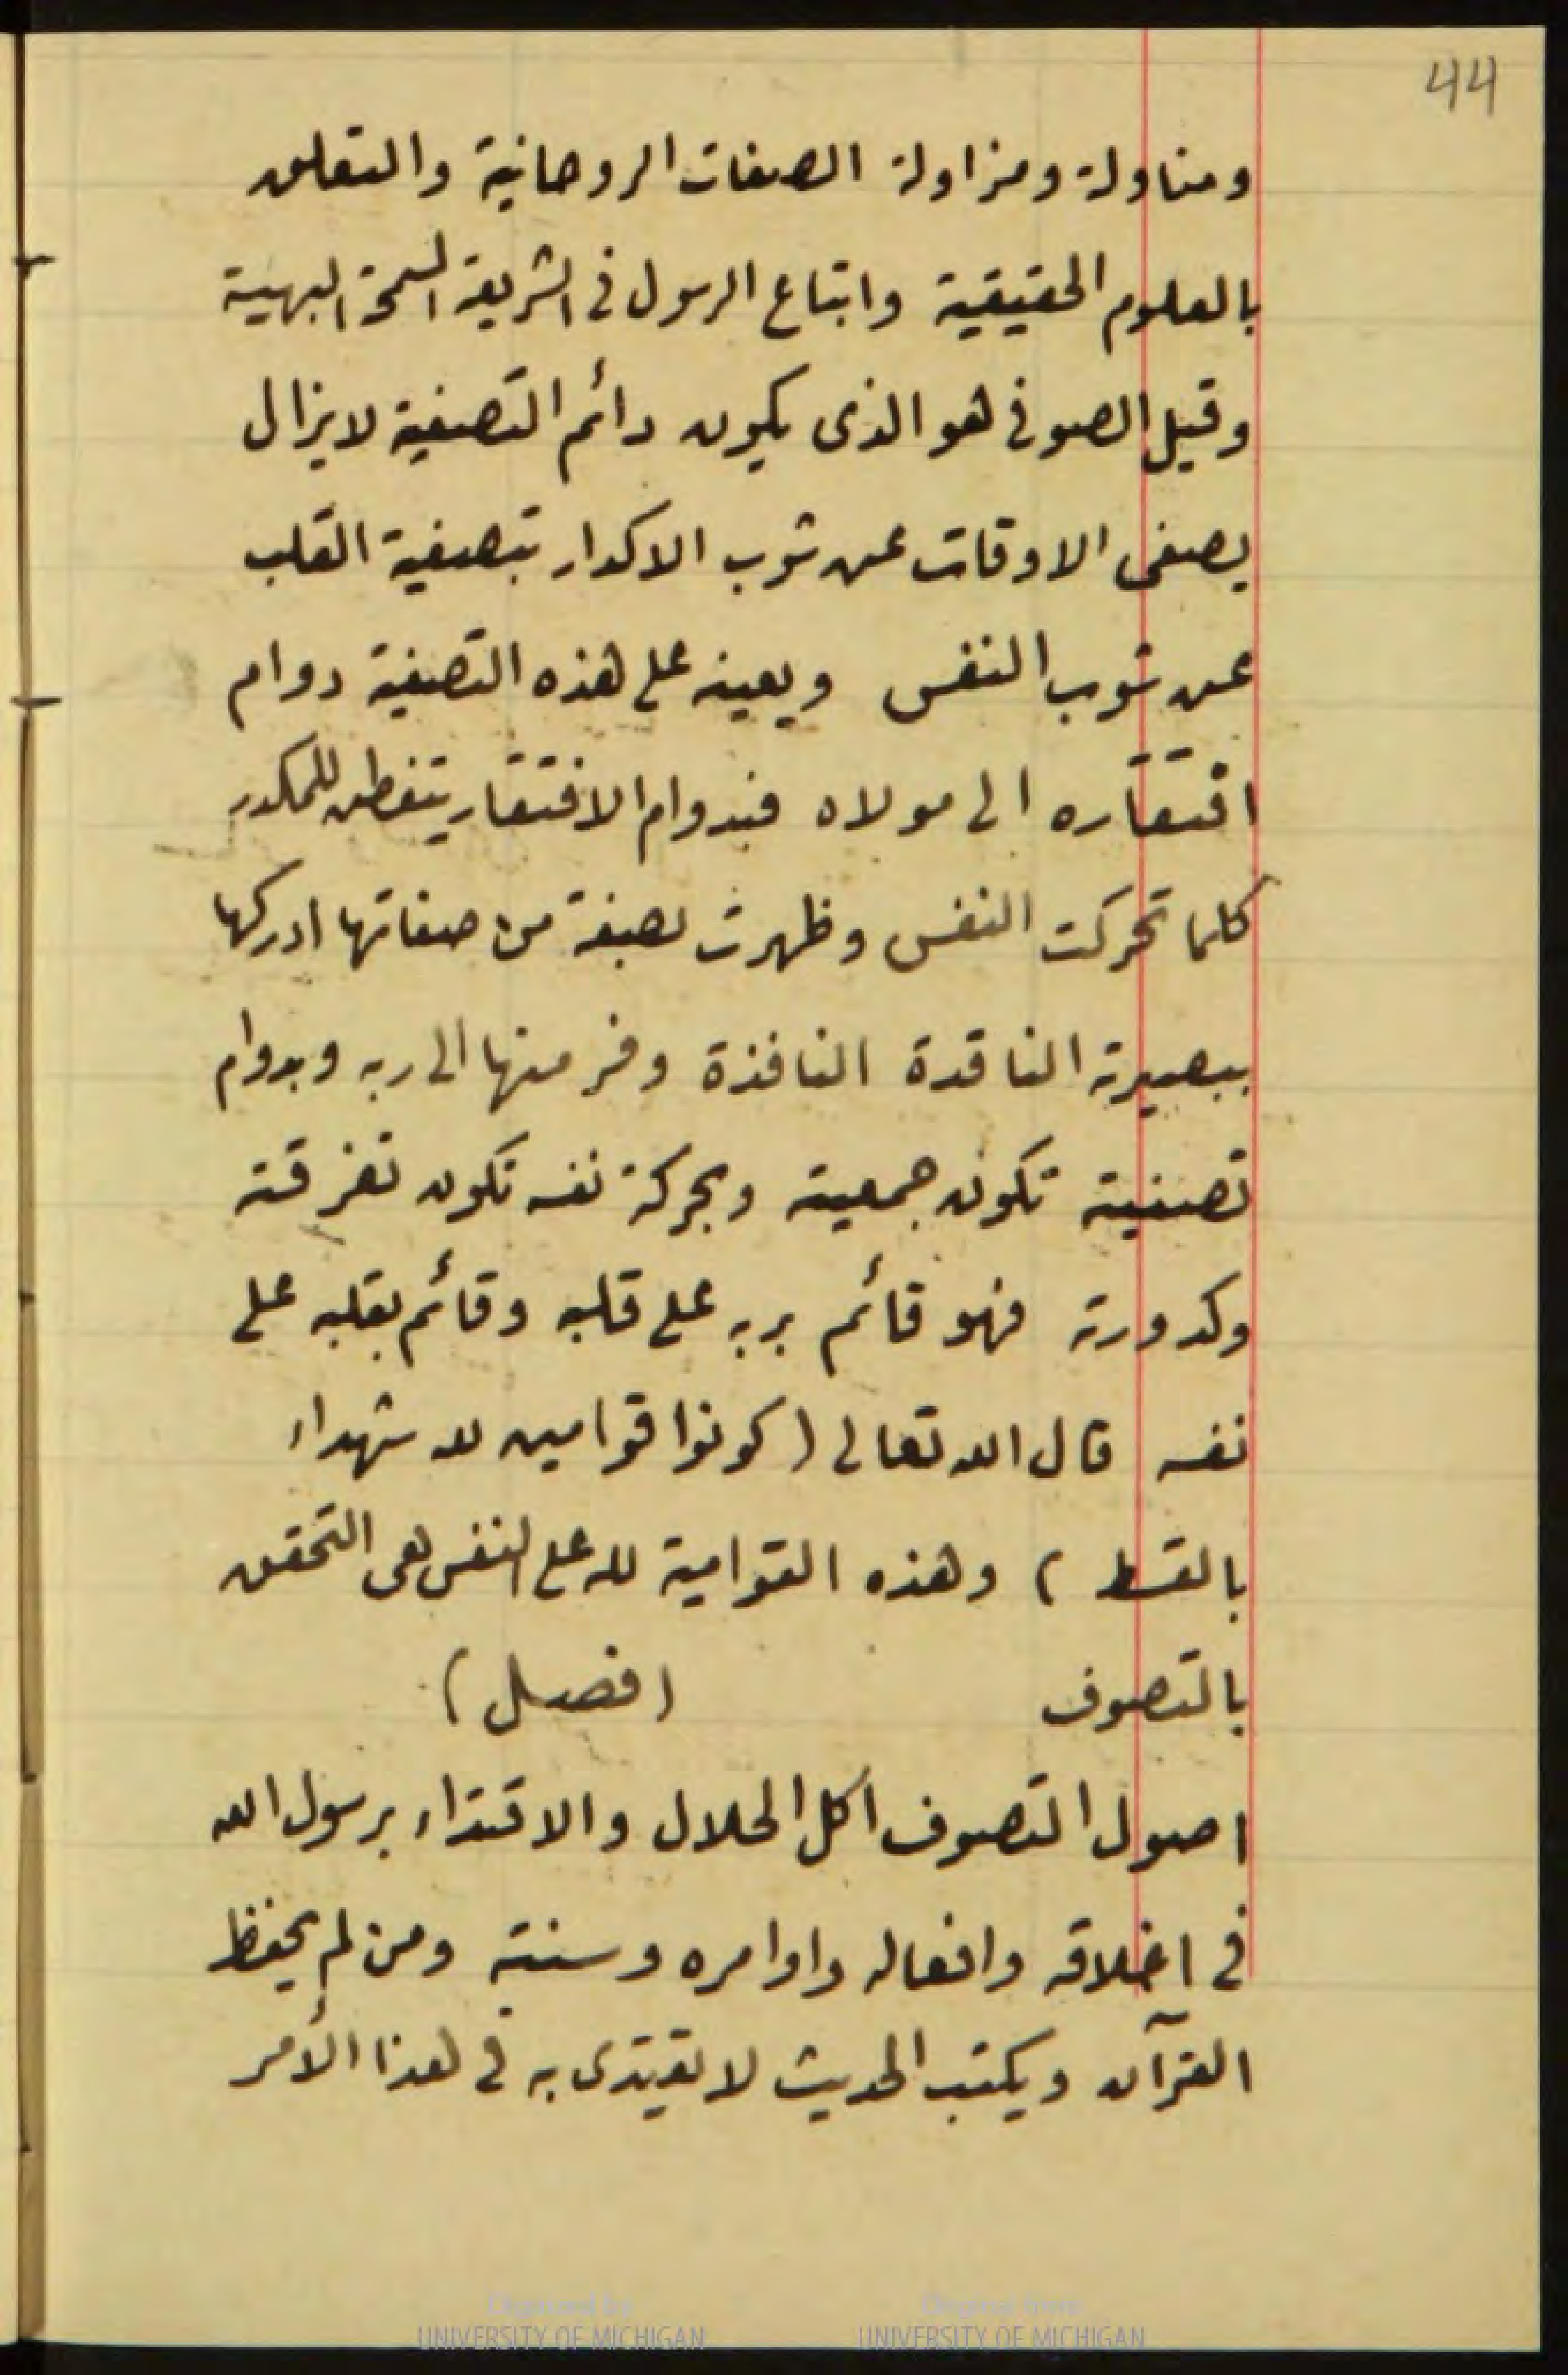 44
ومناولة ومزاولة الصفات الروحانية والتعلق
بالعلوم الحقيقية واتباع الرسول فى الشريعة السمحة البهية
وقيل الصوفى هو الذى يكون دائم التصفية لايزال
يصفى الاوقات عن شوب الاكدار بتصفية القلب
عن شوب النفس ويعينه على هذه التصفية دوام
افتقاره الى مولاه فبدوام الافتقار يتفطن للمكدر
كلما تحركت النفس وظهرت بصفة من صفاتها ادركها
ببصيرته الناقدة النافذة وفر منها الى ربه وبدوام
تصفيته تكون جمعيته وبحركة نفسه تكون تفرقته
وكدورته فهو قائم بربه على قلبه وقائم بقلبه على
نفسه قال الله تعالى (كونوا قوامين لله شهداء
بالقسط) وهذه القوامية لله على النفس هى التحقق
بالتصوف (فصل)
اصول التصوف اكل الحلال والاقتداء برسول الله
فى اخلاقه وافعاله واوامره وسنته ومن لم يحفظ
القرآن ويكتب الحديث لا يقتدى به فى هذا الأمر
Digitized by
UNIVERSITY OF MICHIGAN
Original from
UNIVERSITY OF MICHIGAN